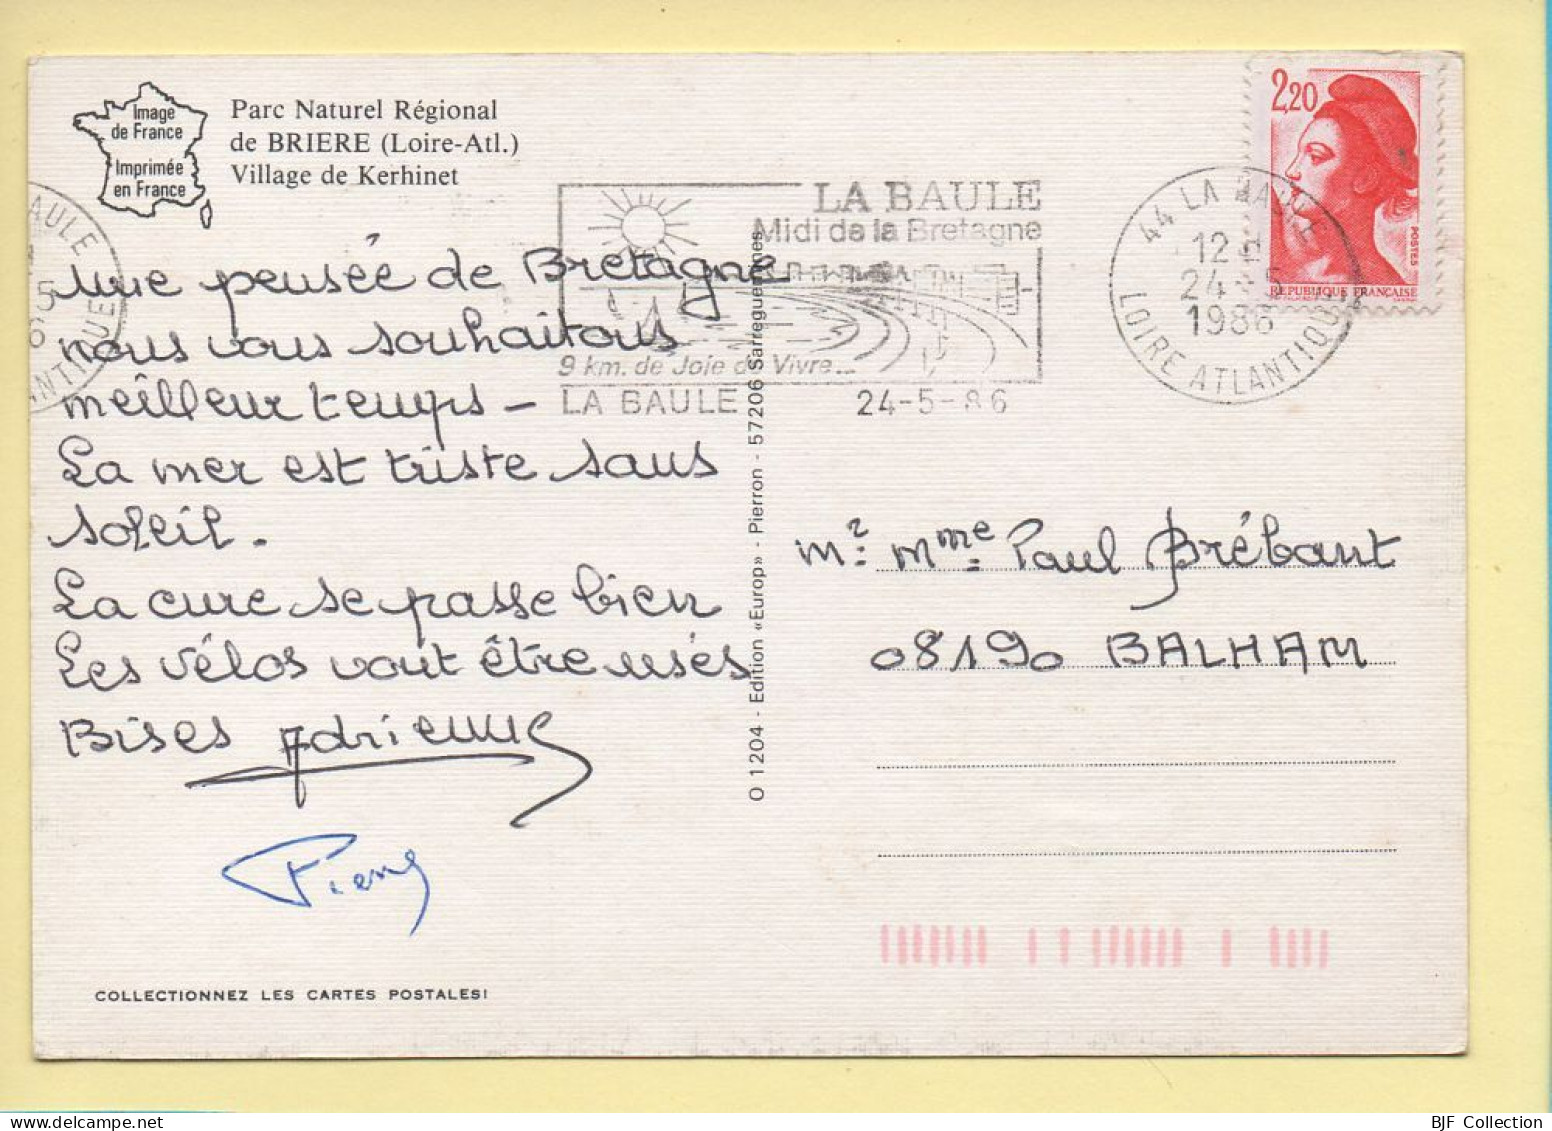 Image
de France
Imprimée
en France
Parc Naturel Régional
de BRIERE (Loire-Atl.)
Village de Kerhinet
Une pensée de Bretagne
nous vous souhaitons
meilleur temps -
La mer est triste sans
soleil.
La cure se passe bien
Les vélos vont être usés
Bises Adrienne
Pierre
COLLECTIONNEZ LES CARTES POSTALES!
O 1204 - Edition «Europ» - Pierron - 57206 Sarreguemines
LA BAULE
Midi de la Bretagne
9 km. de Joie de Vivre...
LA BAULE 24-5-86
44 LA BAULE
12 H
24-5
1986
LOIRE ATLANTIQUE
2,20
POSTES
REPUBLIQUE FRANÇAISE
Mr. Mme Paul Brébant
08190 BALHAM
BJF Collection